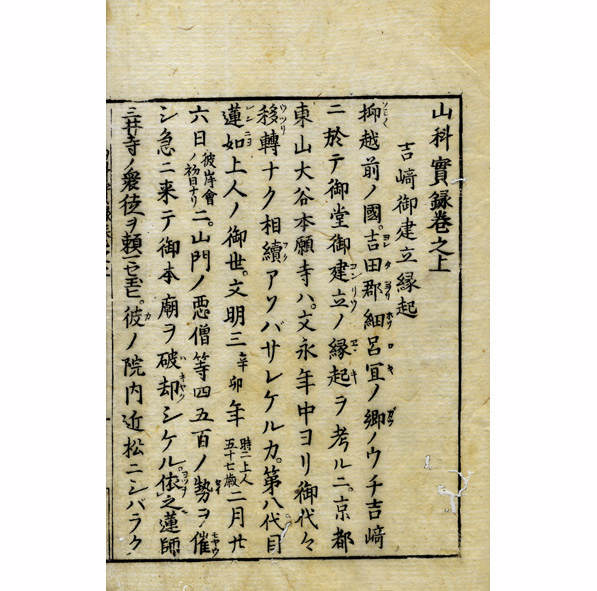 山科實録巻之上
吉﨑御建立縁起
抑越前ノ國。吉田郡細呂冝ノ郷ノウチ吉﨑
ニ於テ御堂御建立ノ縁起ヲ考ルニ。京都
東山大谷本願寺ハ。文永年中ヨリ御代々
移轉ナク相續アソバサレケルカ。第八代目
蓮如上人ノ御世。文明三辛卯年時ニ上人五十七歳二月廿
六日彼岸會ノ初日ナリニ。山門ノ悪僧等四五百ノ勢ヲ催
シ急ニ来テ御本廟ヲ破却シケル。依之蓮師
三井寺ノ衆徒ヲ頼 彼ノ院内近松ニシバラク